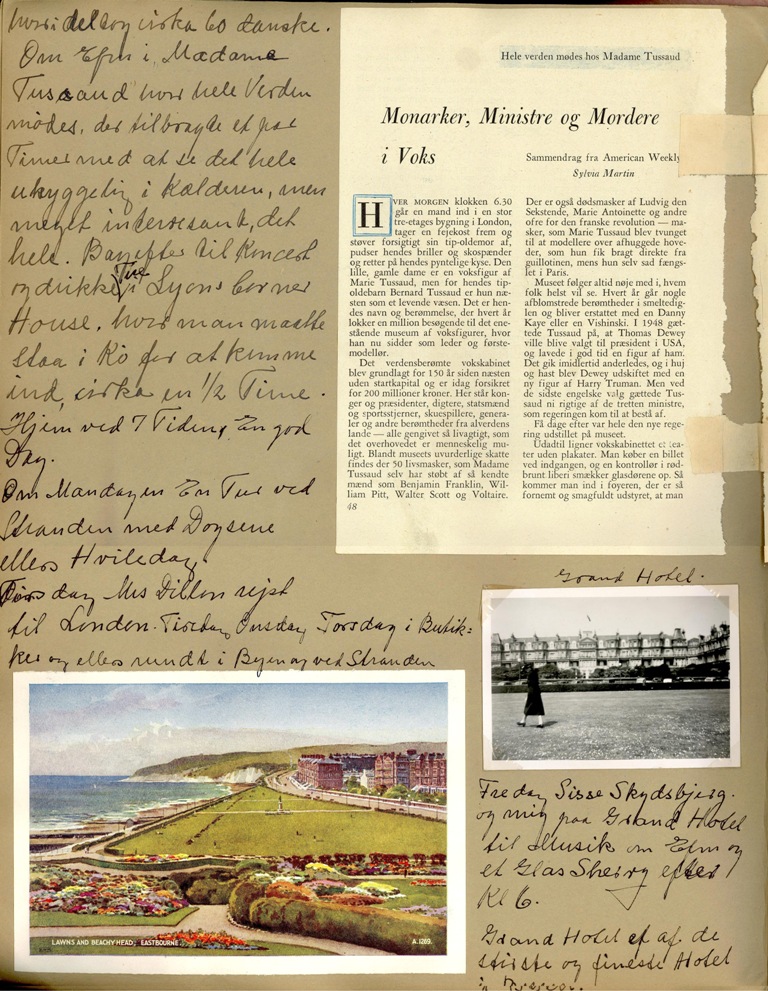 hvori deltog cirka 60 danske.
Om Efm i „Madame
Tussaud" hvor hele Verden
mödes, der tilbragte et par
Timer med at se det hele
uhyggelig i Kælderen, men
meget interessant, det
hele. Bagefter til Koncert
og drikke Tee i Lyons Corner
House, hvor man maatte
staa i Kö for at komme
ind, cirka en 1/2 Time.
Hjem ved 7 Tiden, En god
Dag.
Om Mandagen En Tur ved
Stranden med Dogsene
ellers Hviledag.
Tirsdag Mrs Dillon rejst
til London. Tirsdag, Onsdag, Torsdag i Butik=
ker og ellers rundt i Byen og ved Stranden
Hele verden mødes hos Madame Tussaud
Monarker, Ministre og Mordere
i Voks
Sammendrag fra American Weekly
Sylvia Martin
HVER MORGEN klokken 6.30
går en mand ind i en stor
tre-etages bygning i London,
tager en fejekost frem og
støver forsigtigt sin tip-oldemor af,
pudser hendes briller og skospænder
og retter på hendes pyntelige kyse. Den
lille, gamle dame er en voksfigur af
Marie Tussaud, men for hendes tip-
oldebarn Bernard Tussaud er hun næ-
sten som et levende væsen. Det er hen-
des navn og berømmelse, der hvert år
lokker en million besøgende til det ene-
stående museum af voksfigurer, hvor
han nu sidder som leder og første-
modellør.
Det verdensberømte vokskabinet
blev grundlagt for 150 år siden næsten
uden startkapital og er idag forsikret
for 200 millioner kroner. Her står kon-
ger og præsidenter, digtere, statsmænd
og sportsstjerner, skuespillere, genera-
ler og andre berømtheder fra alverdens
lande — alle gengivet så livagtigt, som
det overhovedet er menneskelig mu-
ligt. Blandt museets uvurderlige skatte
findes der 50 livsmasker, som Madame
Tussaud selv har støbt af så kendte
mænd som Benjamin Franklin, Wil-
liam Pitt, Walter Scott og Voltaire.
48
Der er også dødsmasker af Ludvig den
Sekstende, Marie Antoinette og andre
ofre for den franske revolution — ma-
sker, som Marie Tussaud blev tvunget
til at modellere over afhuggede hove-
der, som hun fik bragt direkte fra
guillotinen, mens hun selv sad fængs-
let i Paris.
Museet følger altid nøje med i, hvem
folk helst vil se. Hvert år går nogle
afblomstrede berømtheder i smeltedig-
len og bliver erstattet med en Danny
Kaye eller en Vishinski. I 1948 gæt-
tede Tussaud på, at Thomas Dewey
ville blive valgt til præsident i USA,
og lavede i god tid en figur af ham.
Det gik imidlertid anderledes, og i huj
og hast blev Dewey udskiftet med en
ny figur af Harry Truman. Men ved
de sidste engelske valg gættede Tus-
saud ni rigtige af de tretten ministre,
som regeringen kom til at bestå af.
Få dage efter var hele den nye rege-
ring udstillet på museet.
Udadtil ligner vokskabinettet et tea-
ter uden plakater. Man køber en billet
ved indgangen, og en kontrollør i rød-
brunt liberi smækker glasdørene op. Så
kommer man ind i foyeren, der er så
fornemt og smagfuldt udstyret, at man
Grand Hotel.
LAWNS AND BEACHY HEAD, EASTBOURNE.
A.1269.
Fredag Sisse Skydsbjerg.
og mig paa Grand Hotel
til Musik om Efm og
et Glas Sherry efter
Kl 6.
Grand Hotel et af de
störste og fineste Hotel